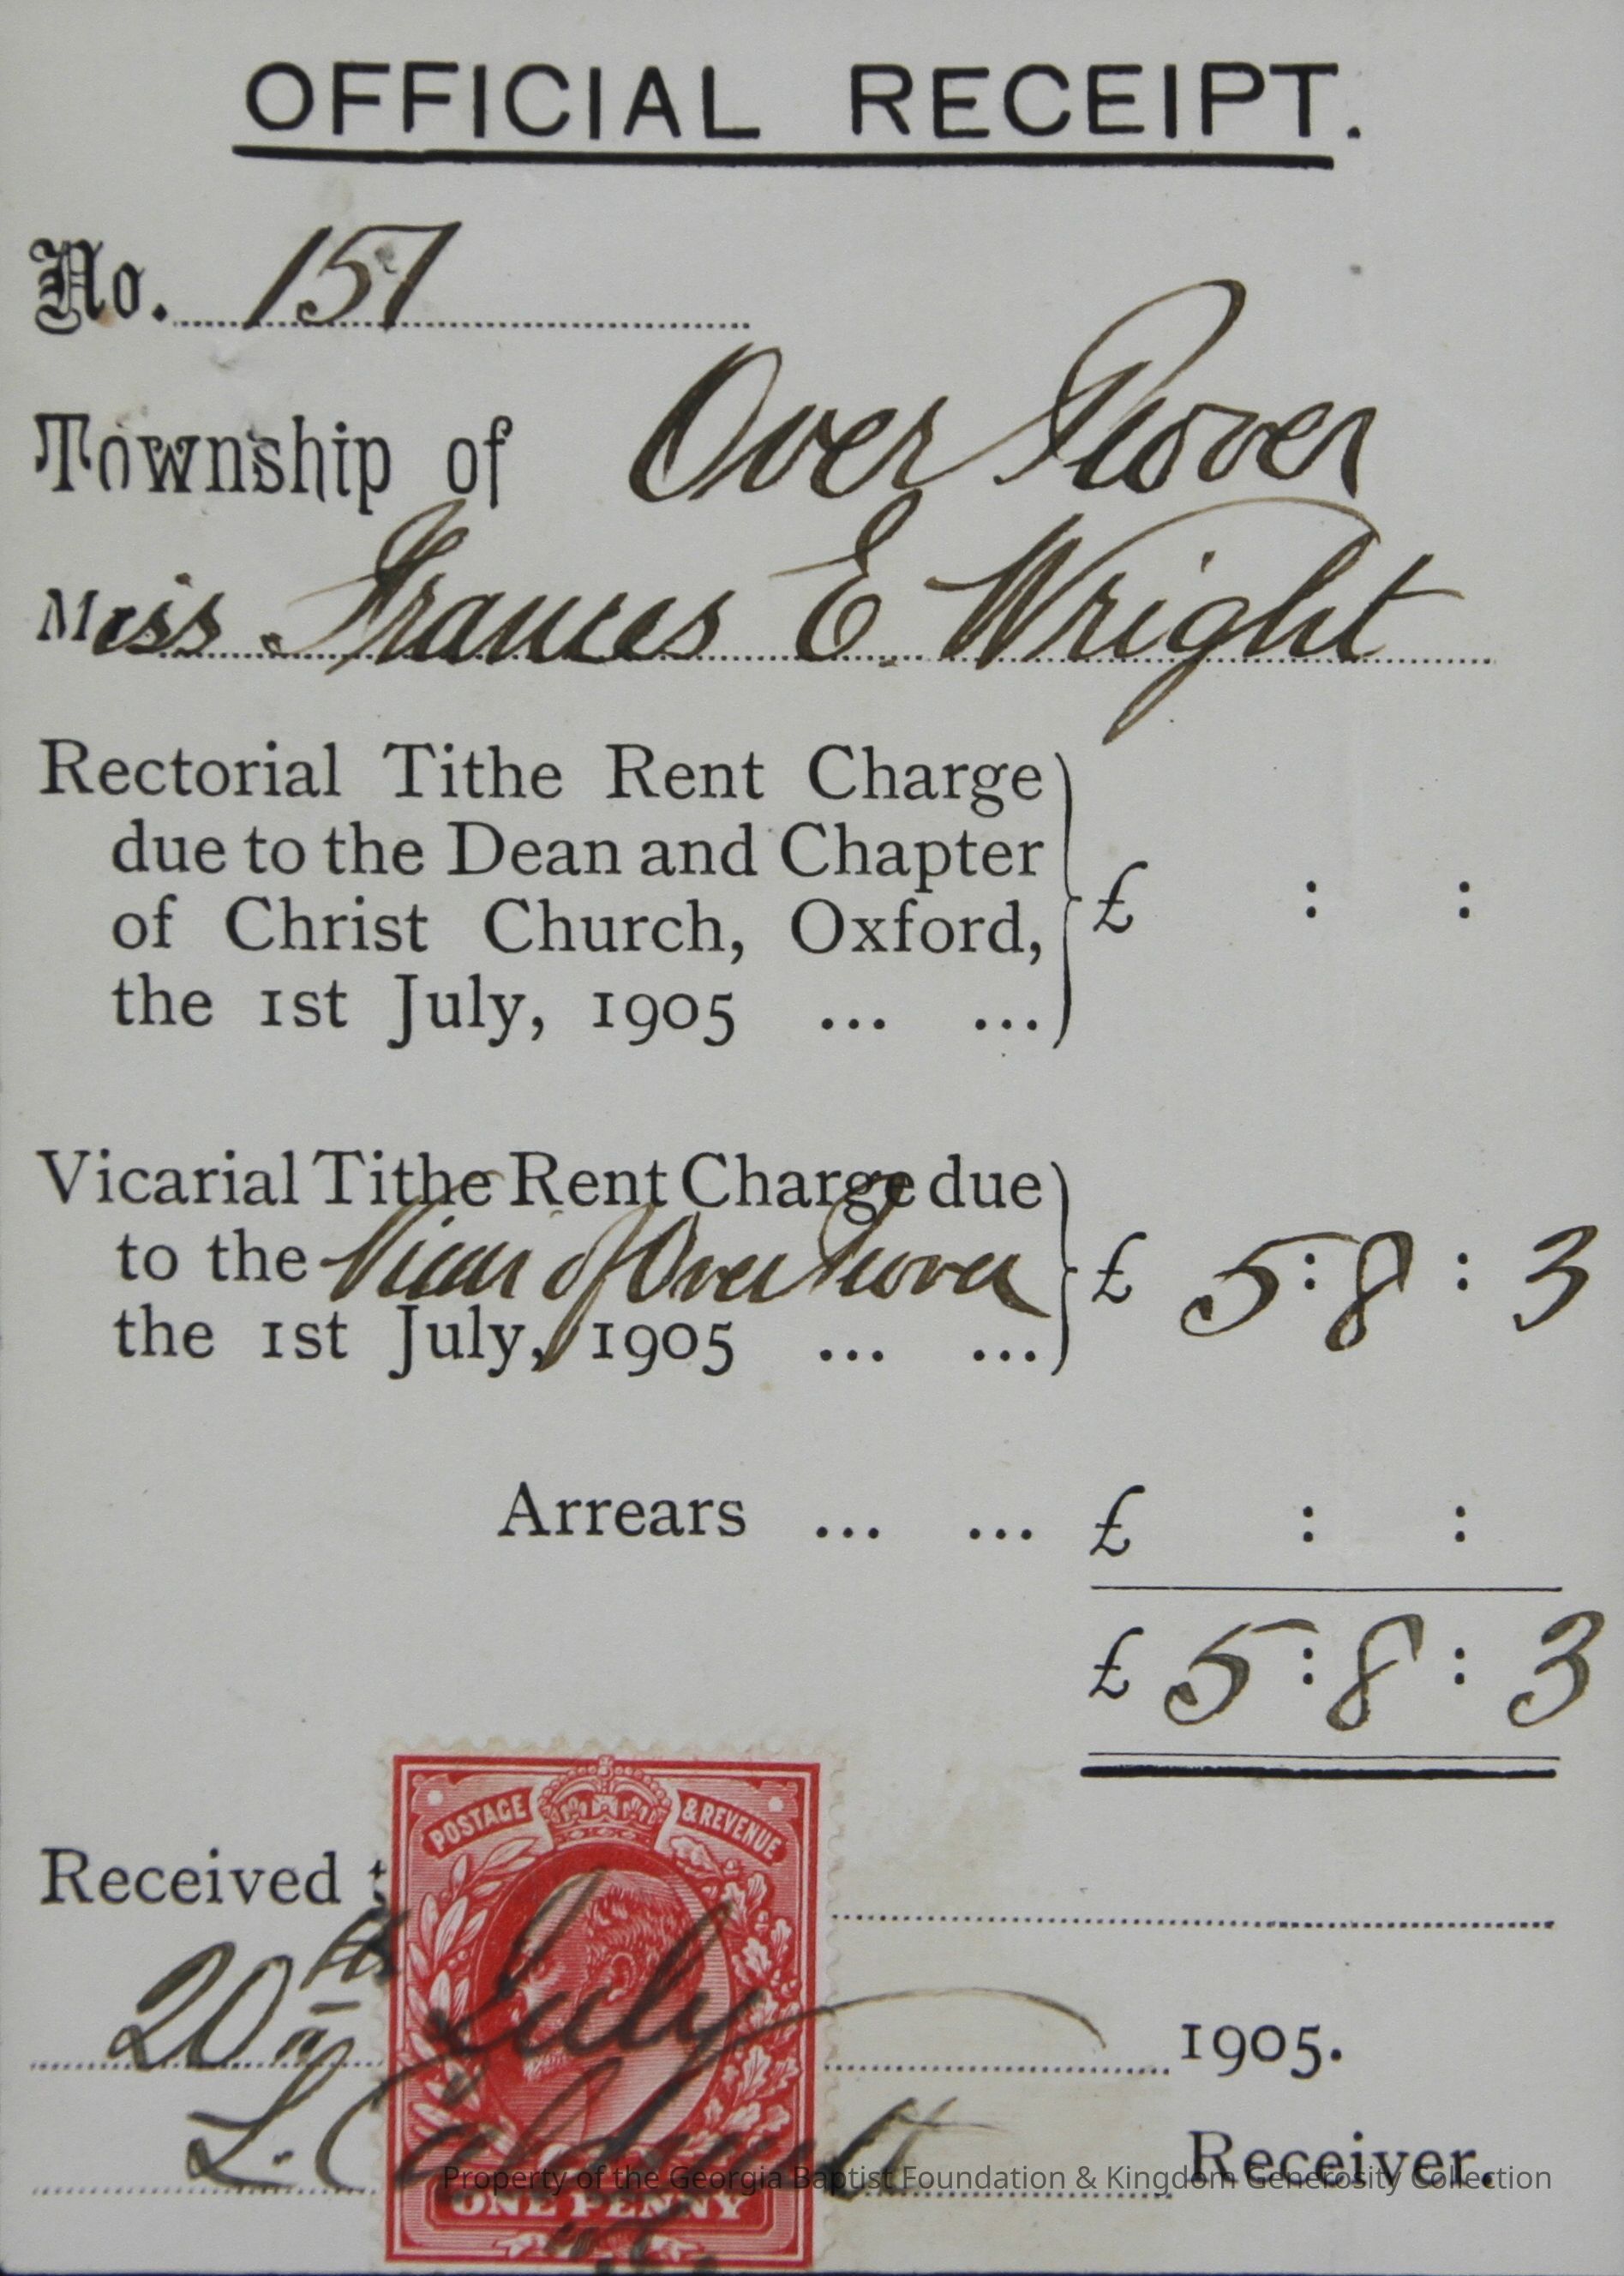 OFFICIAL RECEIPT.
No. 157
Township of Over Peover
Miss Frances E. Wright
Rectorial Tithe Rent Charge
due to the Dean and Chapter
of Christ Church, Oxford,
the 1st July, 1905 ... ...
£ : :
Vicarial Tithe Rent Charge due
to the Vicar of Over Peover
the 1st July, 1905 ... ...
£ 5 : 8 : 3
Arrears ... ... £ : :
£ 5 : 8 : 3
POSTAGE & REVENUE
Received
20th July 1905.
L. Receiver.
Property of the Georgia Baptist Foundation & Kingdom Generosity Collection
ONE PENNY